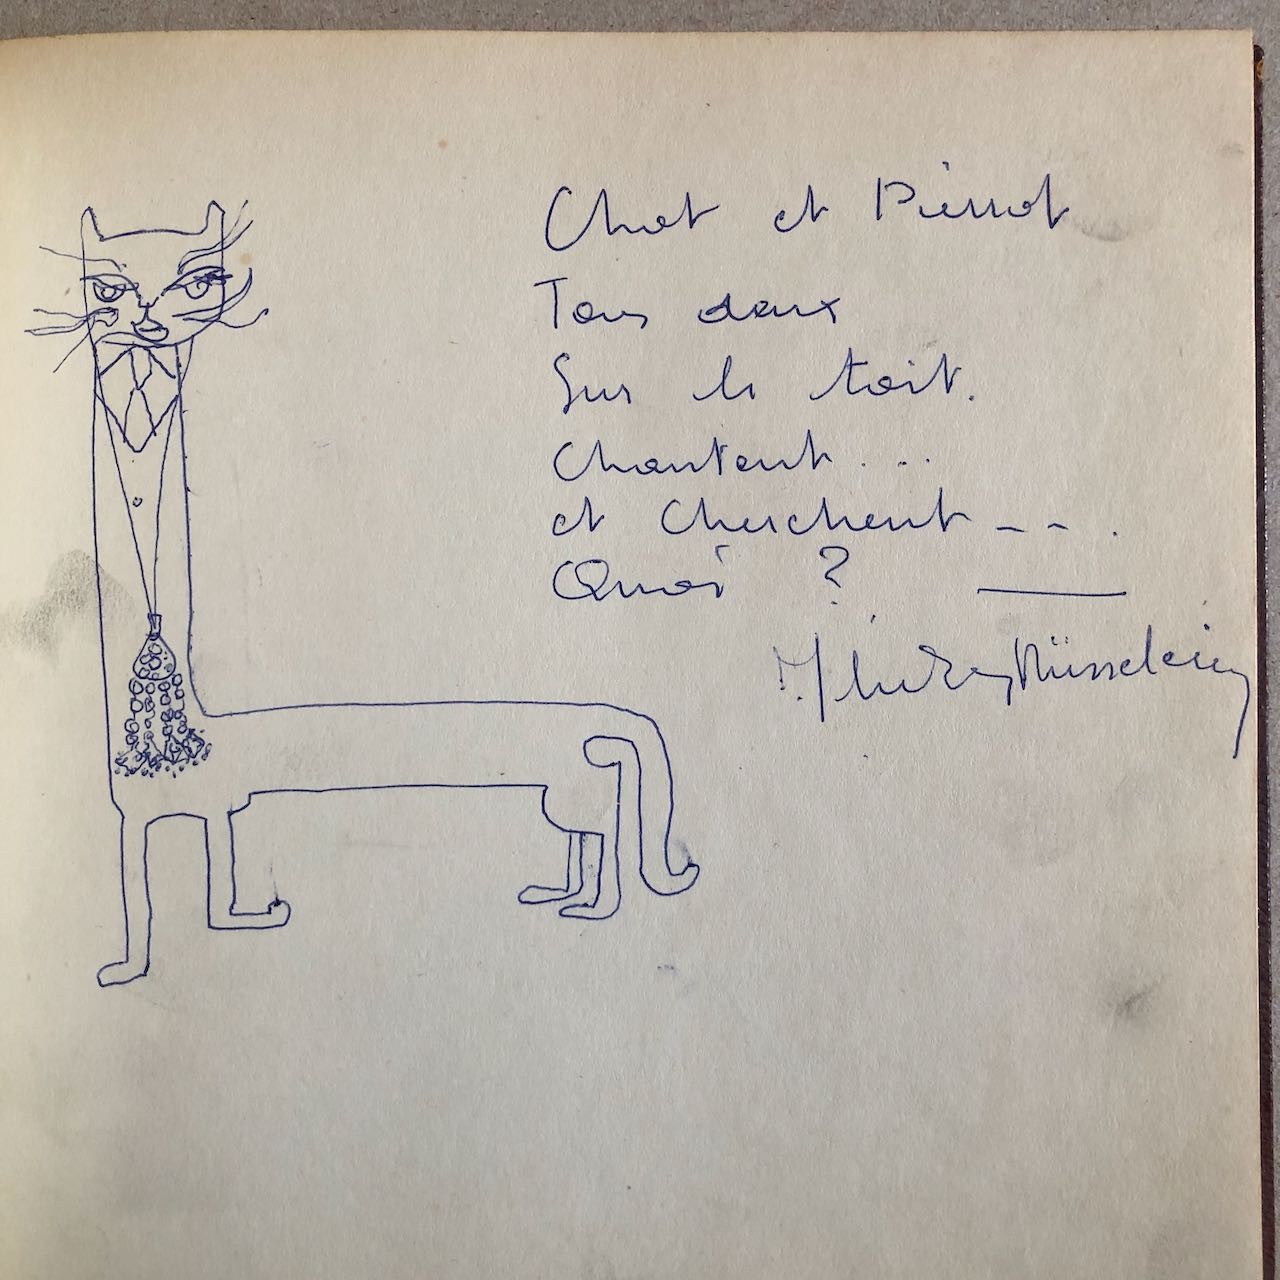 Chat et Pierrot
Tous deux
Sur le toit.
Chantent...
et Cherchent - - .
Quoi ?